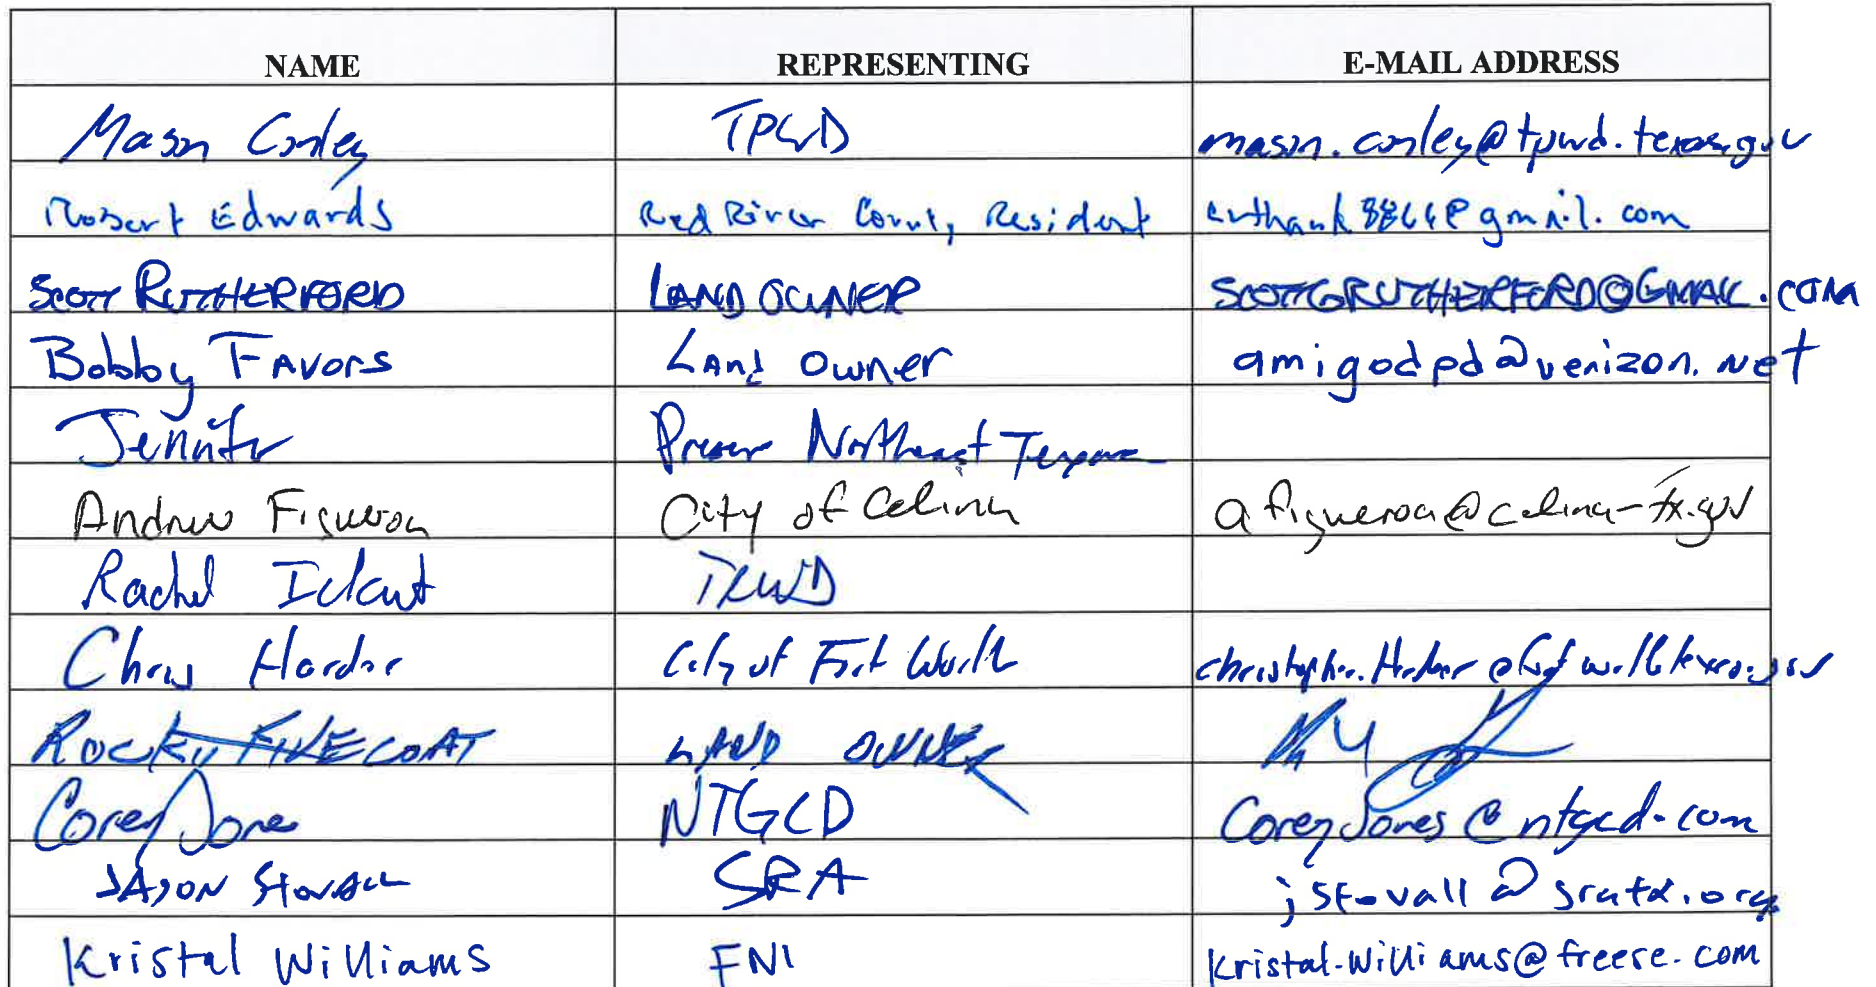 NAME REPRESENTING E-MAIL ADDRESS
Mason Conley TPWD mason.conley@tpwd.texas.gov
Robert Edwards Red River County Resident
SCOTT RUTHERFORD LAND OWNER SCOTTGRUTHERFORD@GMAIL.COM
Bobby FAVORS LAnd Owner amigodpd@verizon.net
Jennifer Northeast
Andrew Figueroa City of Celina afigueroa@celina-tx.gov
Rachel Ickert TRWD
Chris Harder City of Fort Worth christopher.Harder@fortworthtexas.gov
ROCKY LAND OWNER
Corey Jones NTGCD CoreyJones@ntgcd.com
JASON Stovall SRA jstovall@sratx.org
Kristal Williams FNI kristal.williams@freese.com